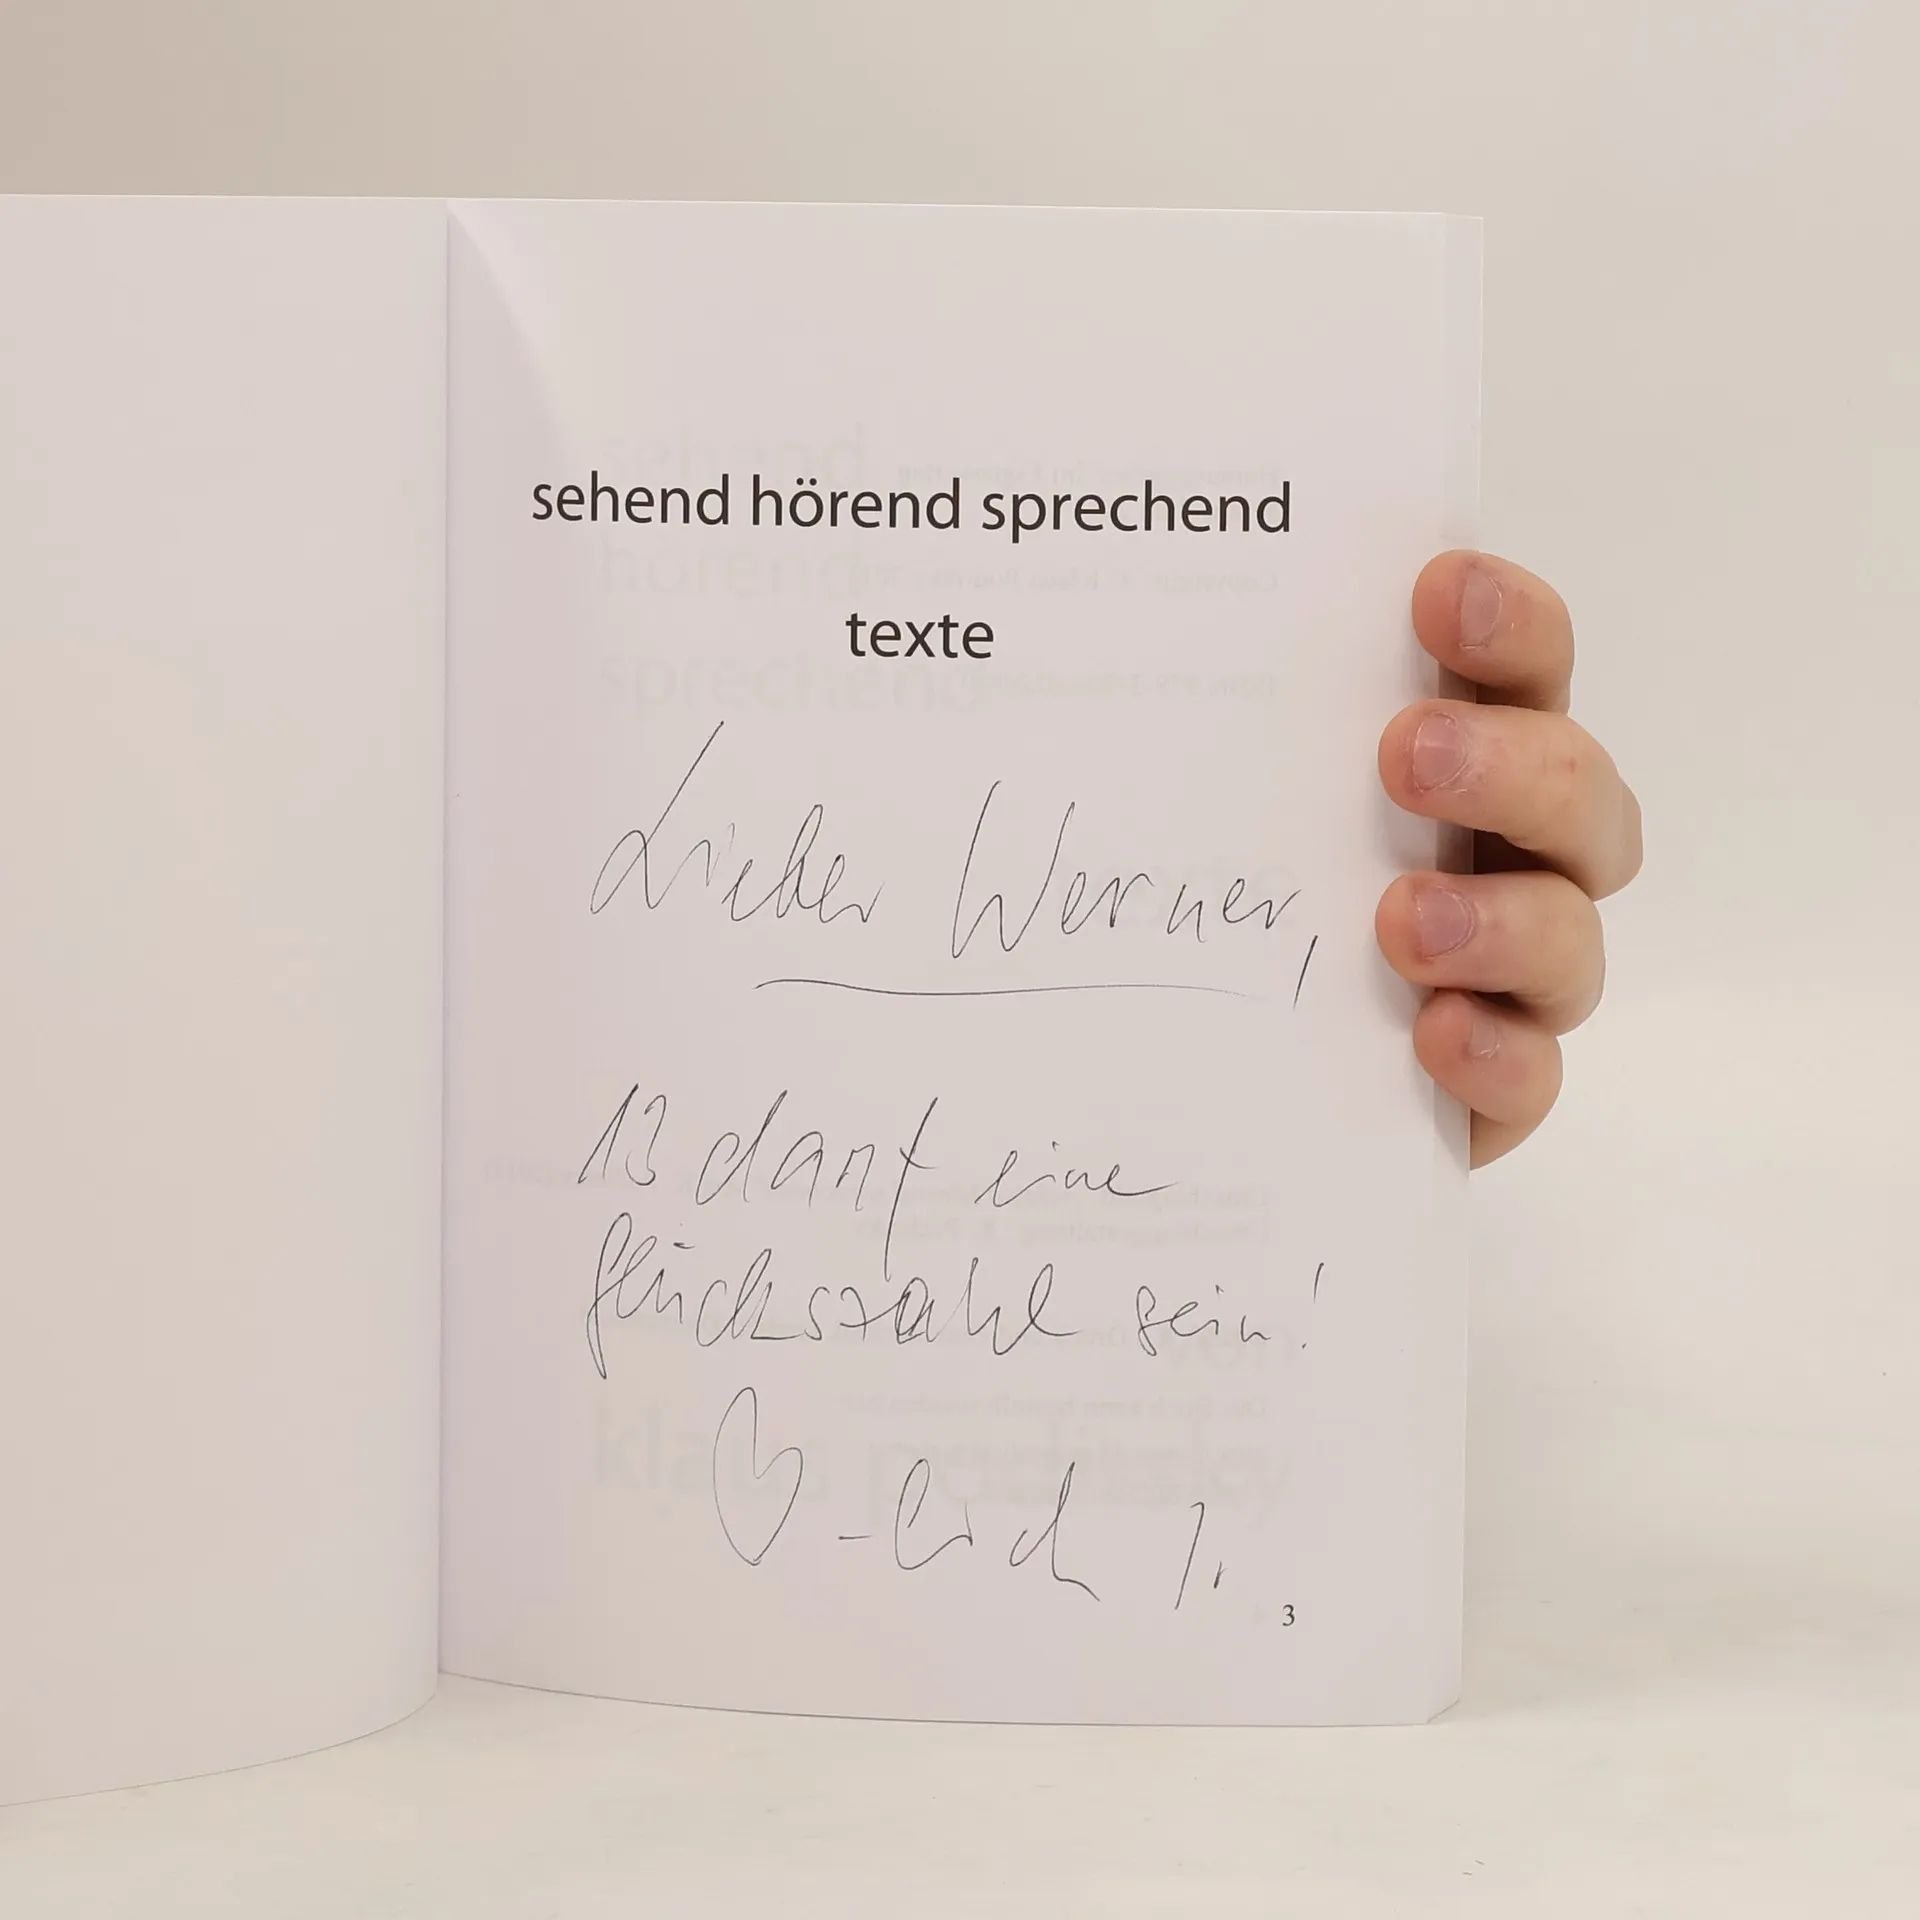 sehend hörend sprechend
texte
Lieber Werner,
13 darf eine
Glückszahl sein!
-lich
3